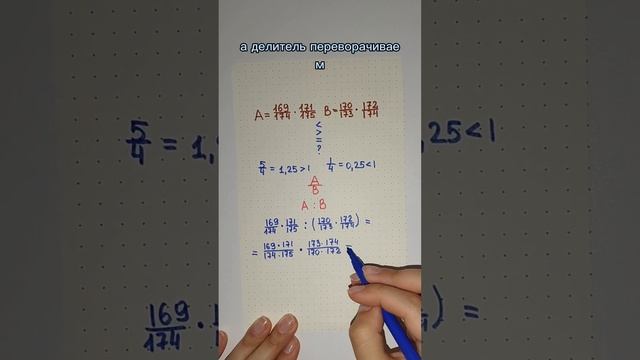 а делитель переворачивае
м
A = 169/174 · 171/175 B = 170/173 · 172/174
<
>
=
?
5/4 = 1,25 > 1 1/4 = 0,25 < 1
A/B
A : B
169/174 · 171/175 : (170/173 · 172/174) =
= 169·171/174·175 · 173·174/170·172 =
5/4 = 1,
,25 < 1
169/174 · 1
) =